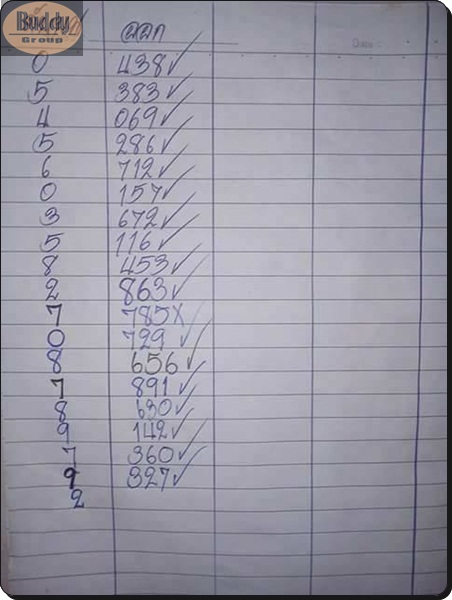 Buddy
Group
ออก
0 438✓
5 383✓
4 069✓
5 286✓
6 712✓
0 157✓
3 672✓
5 116✓
8 453✓
2 863✓
7 785X
0 729✓
8 656✓
7 891✓
8 630✓
9 142✓
7 360✓
9 327✓
2